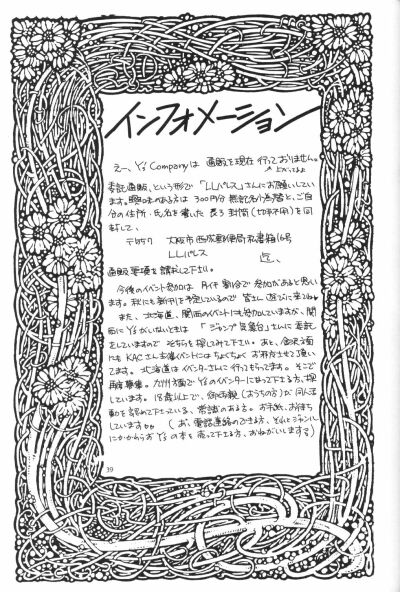 インフォメーション
えー、Y's Companyは 通販を現在 行っておりません。
委託通販、という形で「LLパレス」さんにお願いしてい
ます。興味のある方は 300円分 無記名小為替と、ご自
分の住所・氏名を書いた 長3封筒(切手不用)を同
封して、
大阪市西成郵便局私書箱16号
LLパレス
通販要項を請求して下さい。
今後のイベント参加は 月イチ割合で 参加があると思い
ます。秋にも新刊を予定しているので 皆さん 遊びに来てね
また、北海道、関西のイベントにも参加していますが、関
西に Y'sがいないときは 「ジャンプ気象台」さんに委託
をしていますので そちらを探してみて下さい。あと、金沢方面
にも KACさん主催イベントにはちょくちょく お邪魔させて頂い
てます。北海道はイベンターさんに行ってもらってます。そこで
再度募集。九州方面で Y'sのイベンターになって下さる方、探
しています。18歳以上で、御両親(おうちの方)が同人活
動を認めて下さっている、常識のある方。お手紙、お待ち
しています
(お、電話連絡のできる方、それとジャンル
にかかわらず Y'sの本を売って下さる方、おねがいします)
39